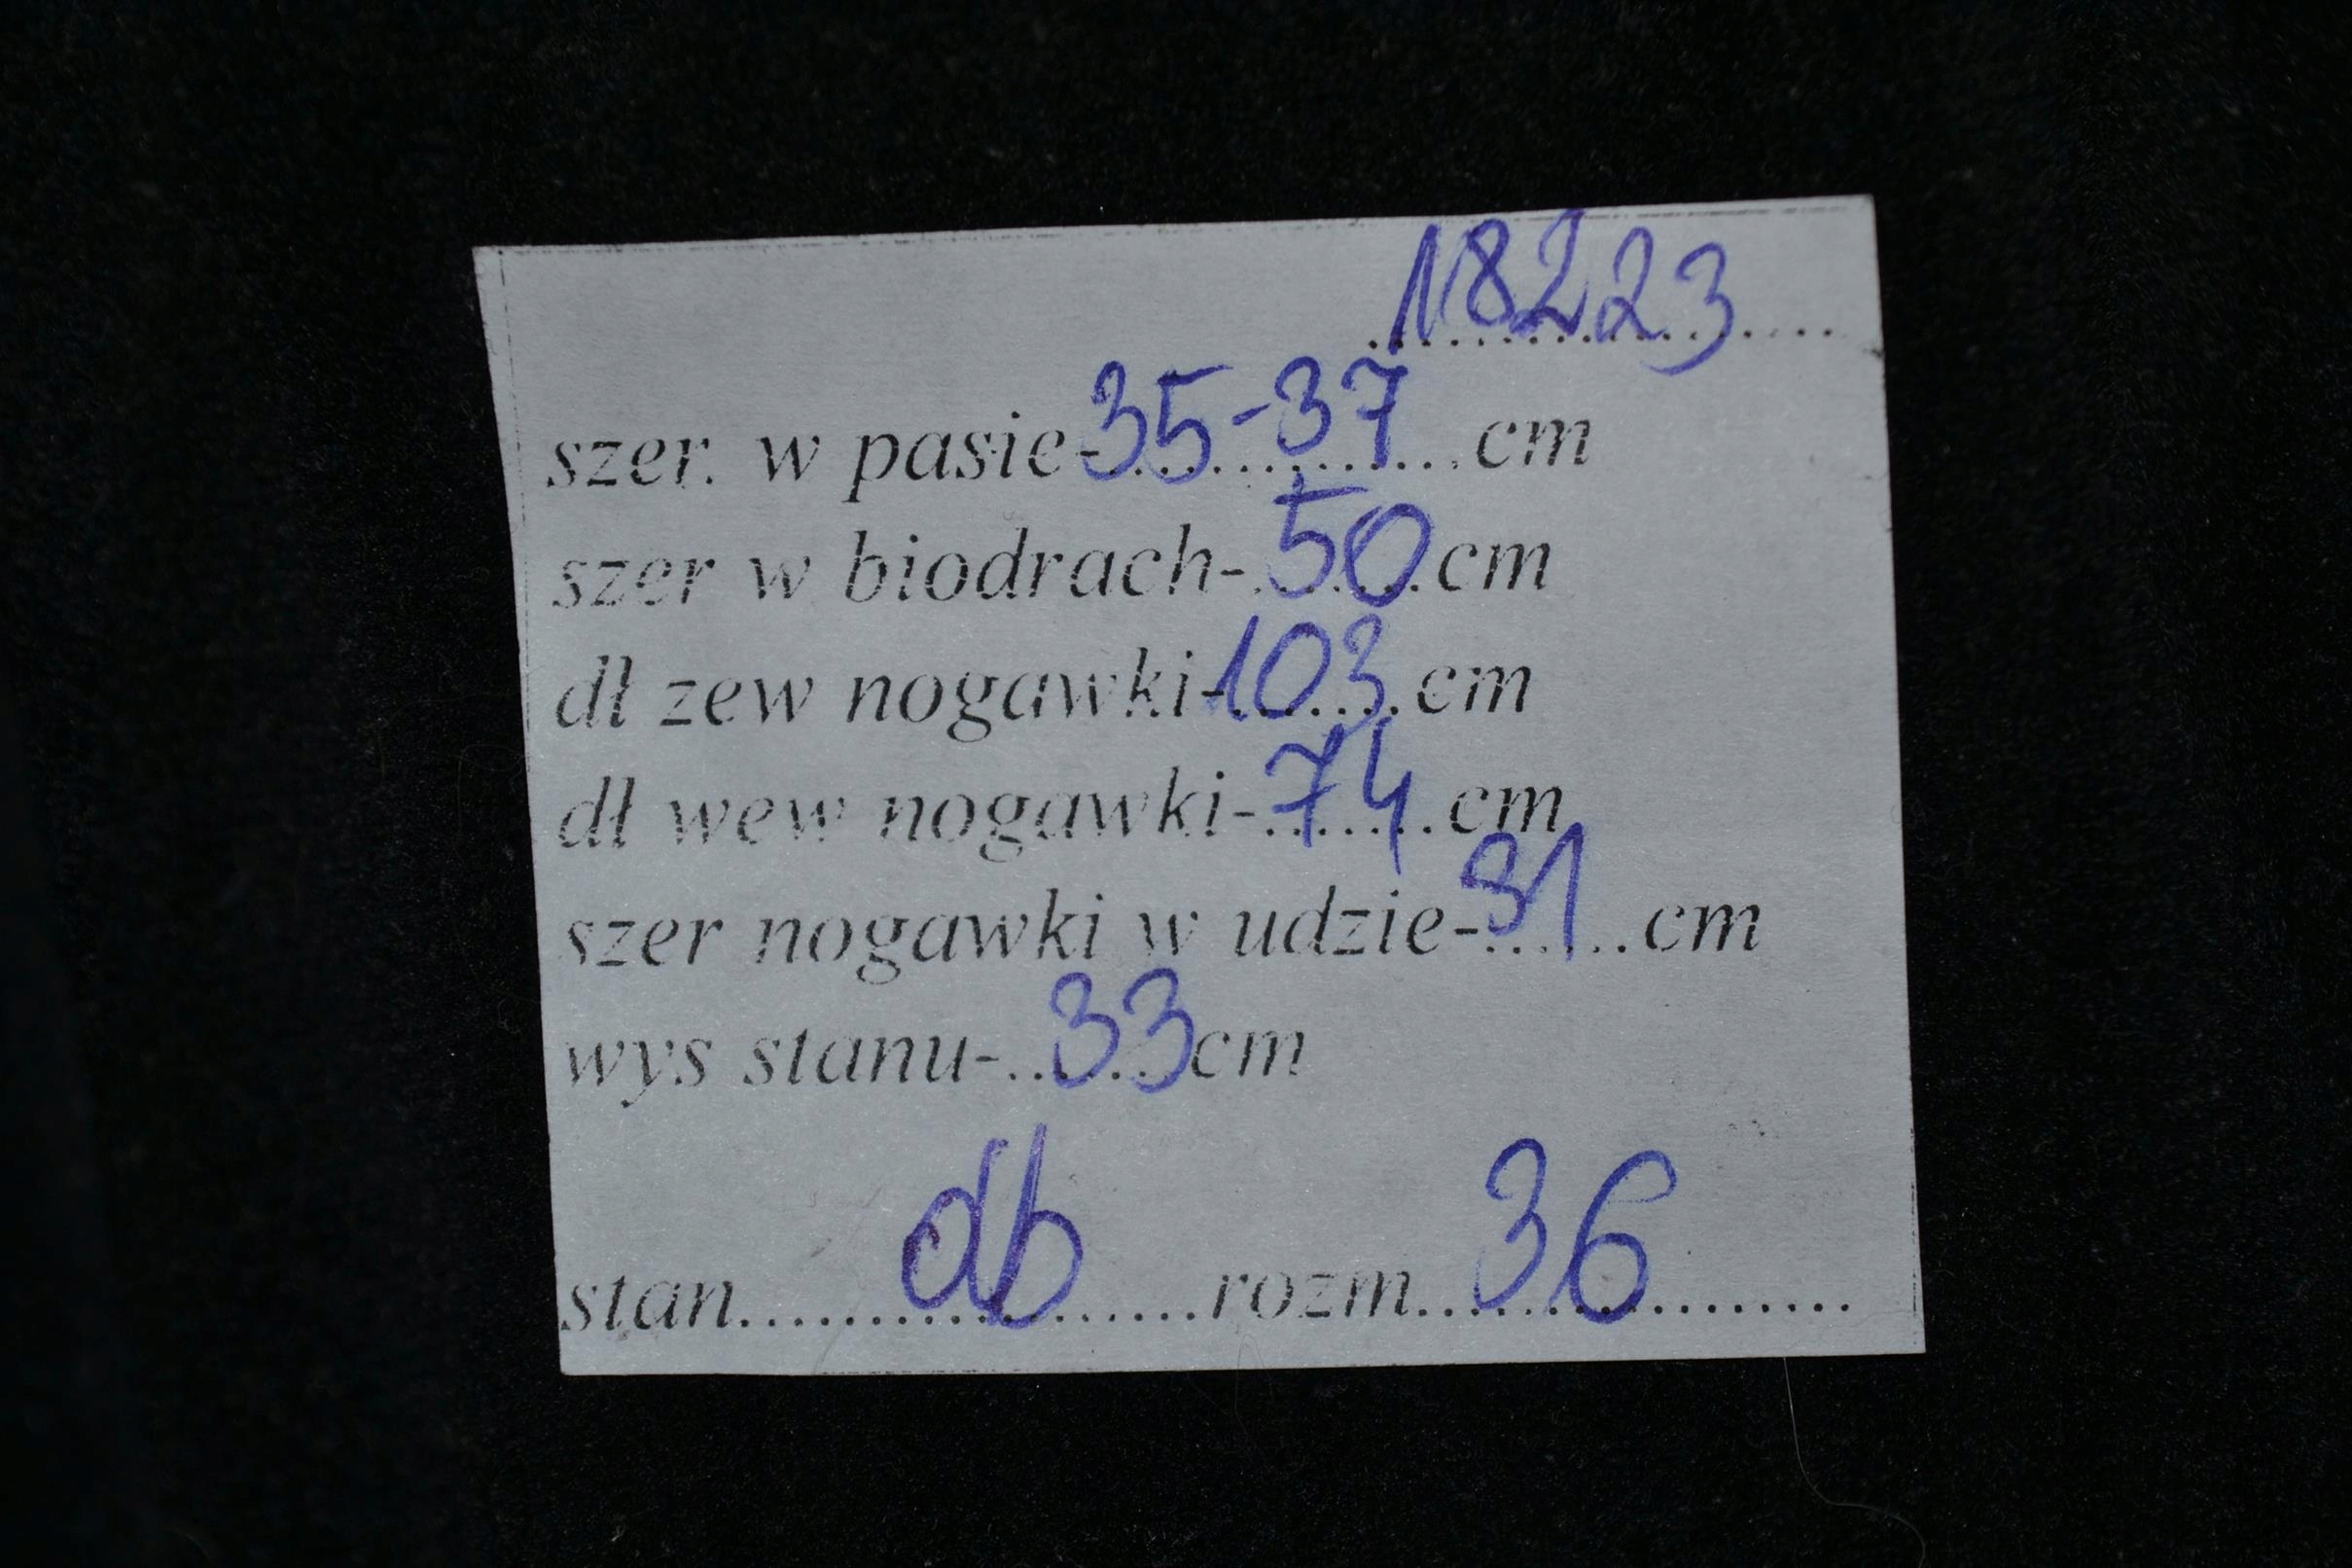 18223
szer. w pasie-35-37......cm
szer w biodrach-.50.cm
dł zew nogawki-103.cm
dł wew nogawki-74.cm
szer nogawki w udzie-31...cm
wys stanu-..33cm
stan........db........rozm...36........